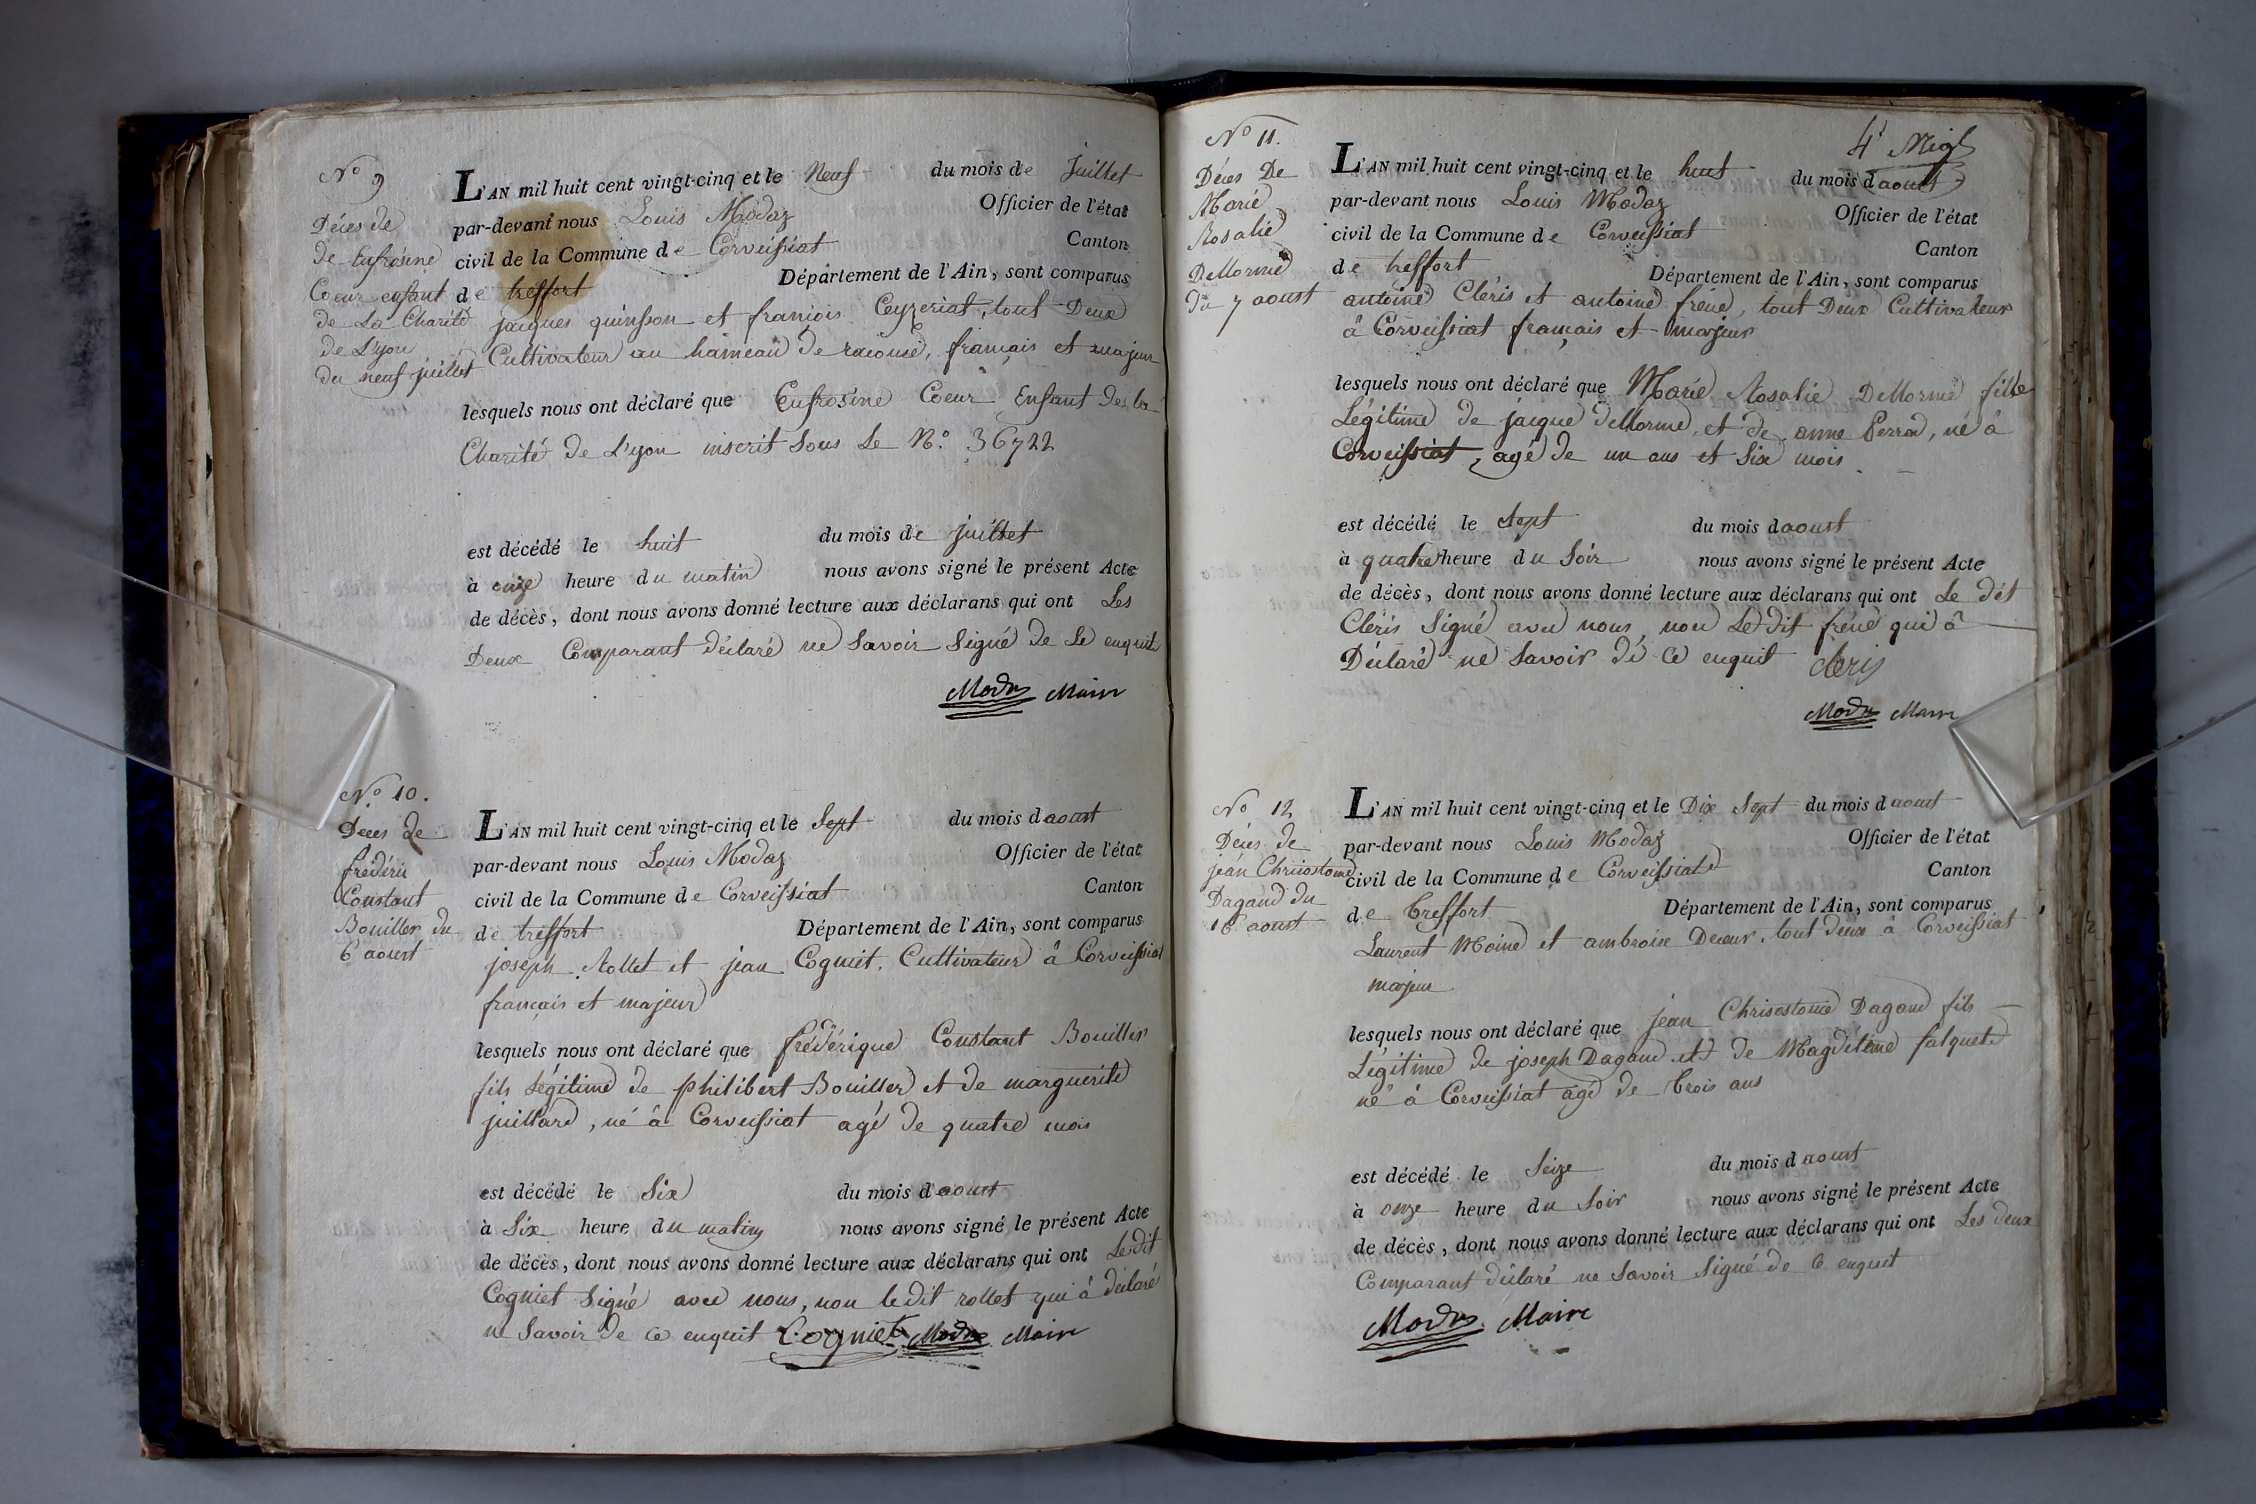 N° 9
Déces de
de Eufrosine
Coeur enfant
de La Charité
de L'yon
du neuf juillet
L'AN mil huit cent vingt-cinq et le Neuf du mois de Juillet
par-devant nous Louis Modaz Officier de l'état
civil de la Commune de Corveissiat Canton
de treffort Département de l'Ain, sont comparus
jacques quinsson et francois Ceyzeriat, tout Deux
Cultivateur au hameau de racouse, français et majeur
lesquels nous ont déclaré que Eufrosine Coeur Enfant de la
Charité de L'yon inscrit Sous Le N° 36722
est décédé le huit du mois de juillet
à onze heure du matin nous avons signé le présent Acte
de décès, dont nous avons donné lecture aux déclarans qui ont Les
Deux Comparant déclaré ne Savoir Signé de Le enquit
Modas Maire
N° 10.
Deces de
frédéric
Constant
Bouiller du
6 aoust
L'AN mil huit cent vingt-cinq et le Sept du mois d'aoust
par-devant nous Louis Modaz Officier de l'état
civil de la Commune de Corveissiat Canton
de treffort Département de l'Ain, sont comparus
joseph Rollet et jean Cogniet, Cultivateur â Corveissiat
français et majeur
lesquels nous ont déclaré que frédérique Constant Bouiller
fils Légitime de philibert Bouiller et de marguerite
juillard, né â Corveissiat agé de quatre mois
est décédé le Six du mois d'aoust
à Six heure du matin nous avons signé le présent Acte
de décès, dont nous avons donné lecture aux déclarans qui ont Ledit
Cogniet Signé avec nous, non ledit rollet qui â déclaré
ne Savoir de ce enquit Cogniet Modas Maire
N° 11.
Déces De
Marie
Rosalie
Dellorme
du 7 aoust
4e
L'AN mil huit cent vingt-cinq et le huit du mois d'aoust
par-devant nous Louis Modaz Officier de l'état
civil de la Commune de Corveissiat Canton
de treffort Département de l'Ain, sont comparus
antoine Cléris et antoine fréne, tout Deux Cultivateur
â Corveissiat français et majeur
lesquels nous ont déclaré que Marie Rosalie Dellorme fille
Légitime de jacque Dellorme et de anne Perrod, né â
Corveissiat, agé de un ans et Six mois
est décédé le Sept du mois d'aoust
à quatre heure du Soir nous avons signé le présent Acte
de décès, dont nous avons donné lecture aux déclarans qui ont Le dét
Cléris Signé avec nous, non Ledit fréne qui â
Déclaré ne Savoir de ce enquit Cleris
Modas Maire
N° 12
Déces de
jean Chrisostome
Dagand du
16 aoust
L'AN mil huit cent vingt-cinq et le Dix Sept du mois d'aoust
par-devant nous Louis Modaz Officier de l'état
civil de la Commune de Corveissiat Canton
de treffort Département de l'Ain, sont comparus
Laurent Moine et ambroise Decoeur, tout deux â Corveissiat
majeur
lesquels nous ont déclaré que jean Chrisostome Dagand fils
Légitime de joseph Dagand et de Magdeleine falquet
né â Corveissiat agé de trois ans
est décédé le Seize du mois d'aoust
à onze heure du Soir nous avons signé le présent Acte
de décès, dont nous avons donné lecture aux déclarans qui ont Les deux
Comparant déclaré ne Savoir Signé de ce enquit
Modas Maire